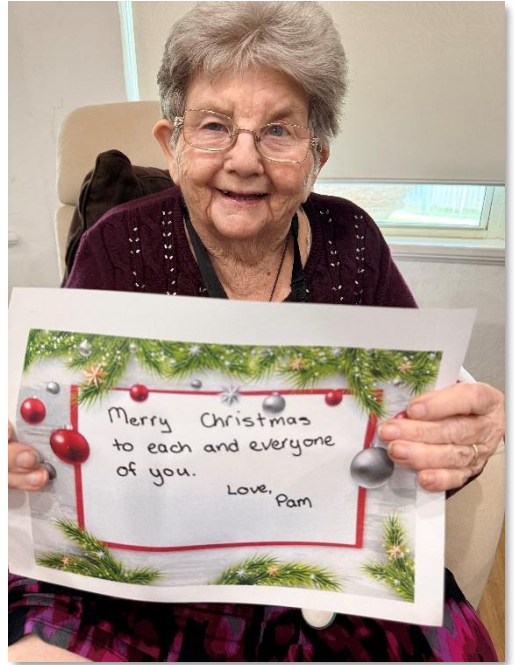 Merry Christmas
to each and everyone
of you.
Love,
Pam